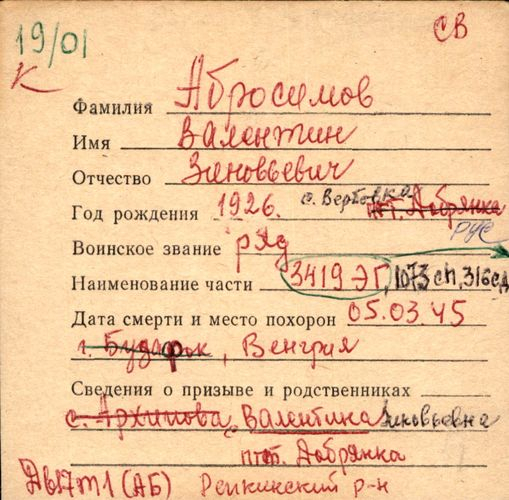 19/01 СВ
К
Фамилия Абросимов
Имя Валентин
Отчество Зиновьевич
Год рождения 1926. с. Вербовка пгт. Добрянка
рус
Воинское звание ряд
Наименование части 3419 ЭГ, 1073 сп, 316 сд
Дата смерти и место похорон 05.03.45
г. Будафок, Венгрия
Сведения о призыве и родственниках
с. Архипова, Валентина Зиновьевна
пгт. Добрянка
Дв17т1 (АБ) Репкинский р-н